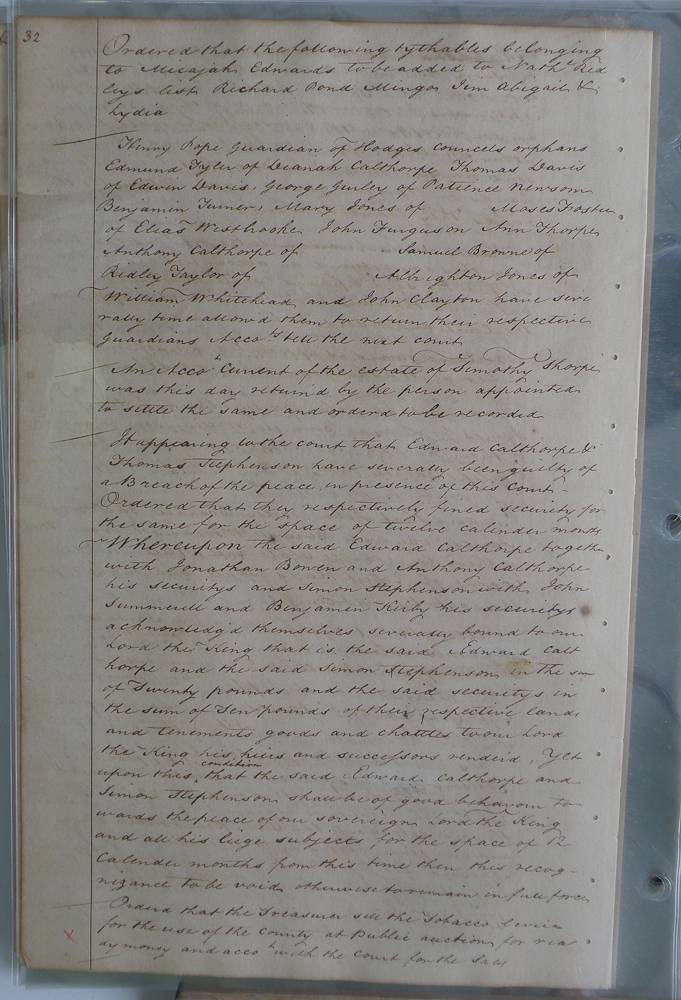 32
Ordered that the following tythables belonging
to Micajah Edwards to be added to Nathl Rid
leys list Richard Pond Mingo Jim Abigail &
Lydia
Henry Pope Guardian of Hodges Councels orphans
Edmund Tyler of Deanah Calthorpe Thomas Davis
of Edwin Davis, George Gurley of Patience Newsom
Benjamin Turner, Mary Jones of Moses Foster
of Elias Westbrooke John Furguson Ann Thorpe
Anthony Calthorpe of Samuel Browne of
Ridley Taylor of Albrighton Jones of
William Whitehead and John Clayton have seve
rally time allowd them to return their respective
Guardians Accots till the next court
An Accot Current of the estate of Timothy Thorpe
was this day returnd by the person appointed
to settle the same and orderd to be recorded
It appearing to the court that Edward Calthorpe &
Thomas Stephenson have severally been guilty of
a Breach of the peace in presence of this Court
Ordered that they respectively fined security for
the same for the space of twelve calender months
Whereupon the said Edward Calthorpe togethe
with Jonathan Bowen and Anthony Calthorpe
his securitys and Simon Stephenson with John
Summerell and Benjamin Kirby his securitys
acknowledg'd themselves severally bound to our
Lord the King that is the said Edward Calt
horpe and the said Simon Stephenson in the sum
of Twenty pounds and the said securitys in
the sum of Ten pounds of their respective lands
and tenements goods and chattles to our Lord
the King his heirs and successors renderd, Yet
upon this condition that the said Edward Calthorpe and
Simon Stephenson shall be of good behavour to
wards the peace of our sovereign Lord the King
and all his liege subjects for the space of 12
Calender months from this time then this recog-
nizance to be void otherwise to remain in full force
Orderd that the Treasurer sell the Tobacco levied
for the use of the County at Public auction for rea
dy money and accot with the Court for the Sale